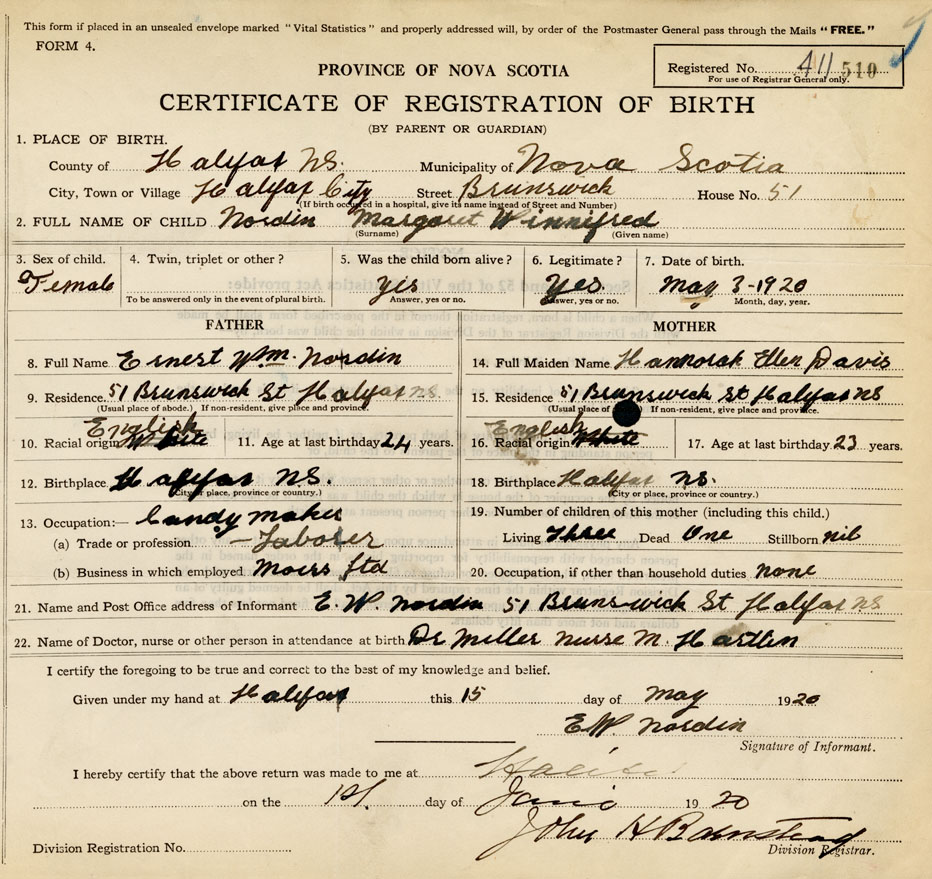 This form if placed in an unsealed envelope marked "Vital Statistics" and properly addressed will, by order of the Postmaster General pass through the Mails "FREE."
FORM 4.
Registered No. 411 510
For use of Registrar General only.
PROVINCE OF NOVA SCOTIA
CERTIFICATE OF REGISTRATION OF BIRTH
(BY PARENT OR GUARDIAN)
1. PLACE OF BIRTH.
County of Halifax N.S. Municipality of Nova Scotia
City, Town or Village Halifax City Street Brunswick House No. 51
(If birth occured in a hospital, give its name instead of Street and Number)
2. FULL NAME OF CHILD Nordin Margaret Winnifred
(Surname) (Given name)
3. Sex of child. 4. Twin, triplet or other? 5. Was the child born alive? 6. Legitimate? 7. Date of birth.
Female yes Yes May 3-1920
To be answered only in the event of plural birth. Answer, yes or no. Answer, yes or no. Month, day, year.
FATHER MOTHER
8. Full Name Ernest Wm. Nordin 14. Full Maiden Name Hannorah Ellen Davis
9. Residence. 51 Brunswick St Halifax NS 15. Residence 51 Brunswick St Halifax NS
(Usual place of abode.) If non-resident, give place and province. (Usual place of If non-resident, give place and province.
English English
10. Racial origin White 11. Age at last birthday 24 years. 16. Racial origin White 17. Age at last birthday 23 years.
12. Birthplace Halifax N.S. 18. Birthplace Halifax NS.
(City or place, province or country.) (City or place, province or country.)
13. Occupation:— Candy maker 19. Number of children of this mother (including this child.)
(a) Trade or profession. — Laborer Living Three Dead One Stillborn nil
(b) Business in which employed Moirs Ltd 20. Occupation, if other than household duties none
21. Name and Post Office address of Informant E. W. Nordin 51 Brunswick St Halifax NS
22. Name of Doctor, nurse or other person in attendance at birth Dr Miller Nurse M. Hartlin
I certify the foregoing to be true and correct to the best of my knowledge and belief.
Given under my hand at Halifax this 15 day of May 1920
E W Nordin
Signature of Informant.
I hereby certify that the above return was made to me at Halifax
on the 1st. day of June 1920
John H Barnstead
Division Registration No. Division Registrar.